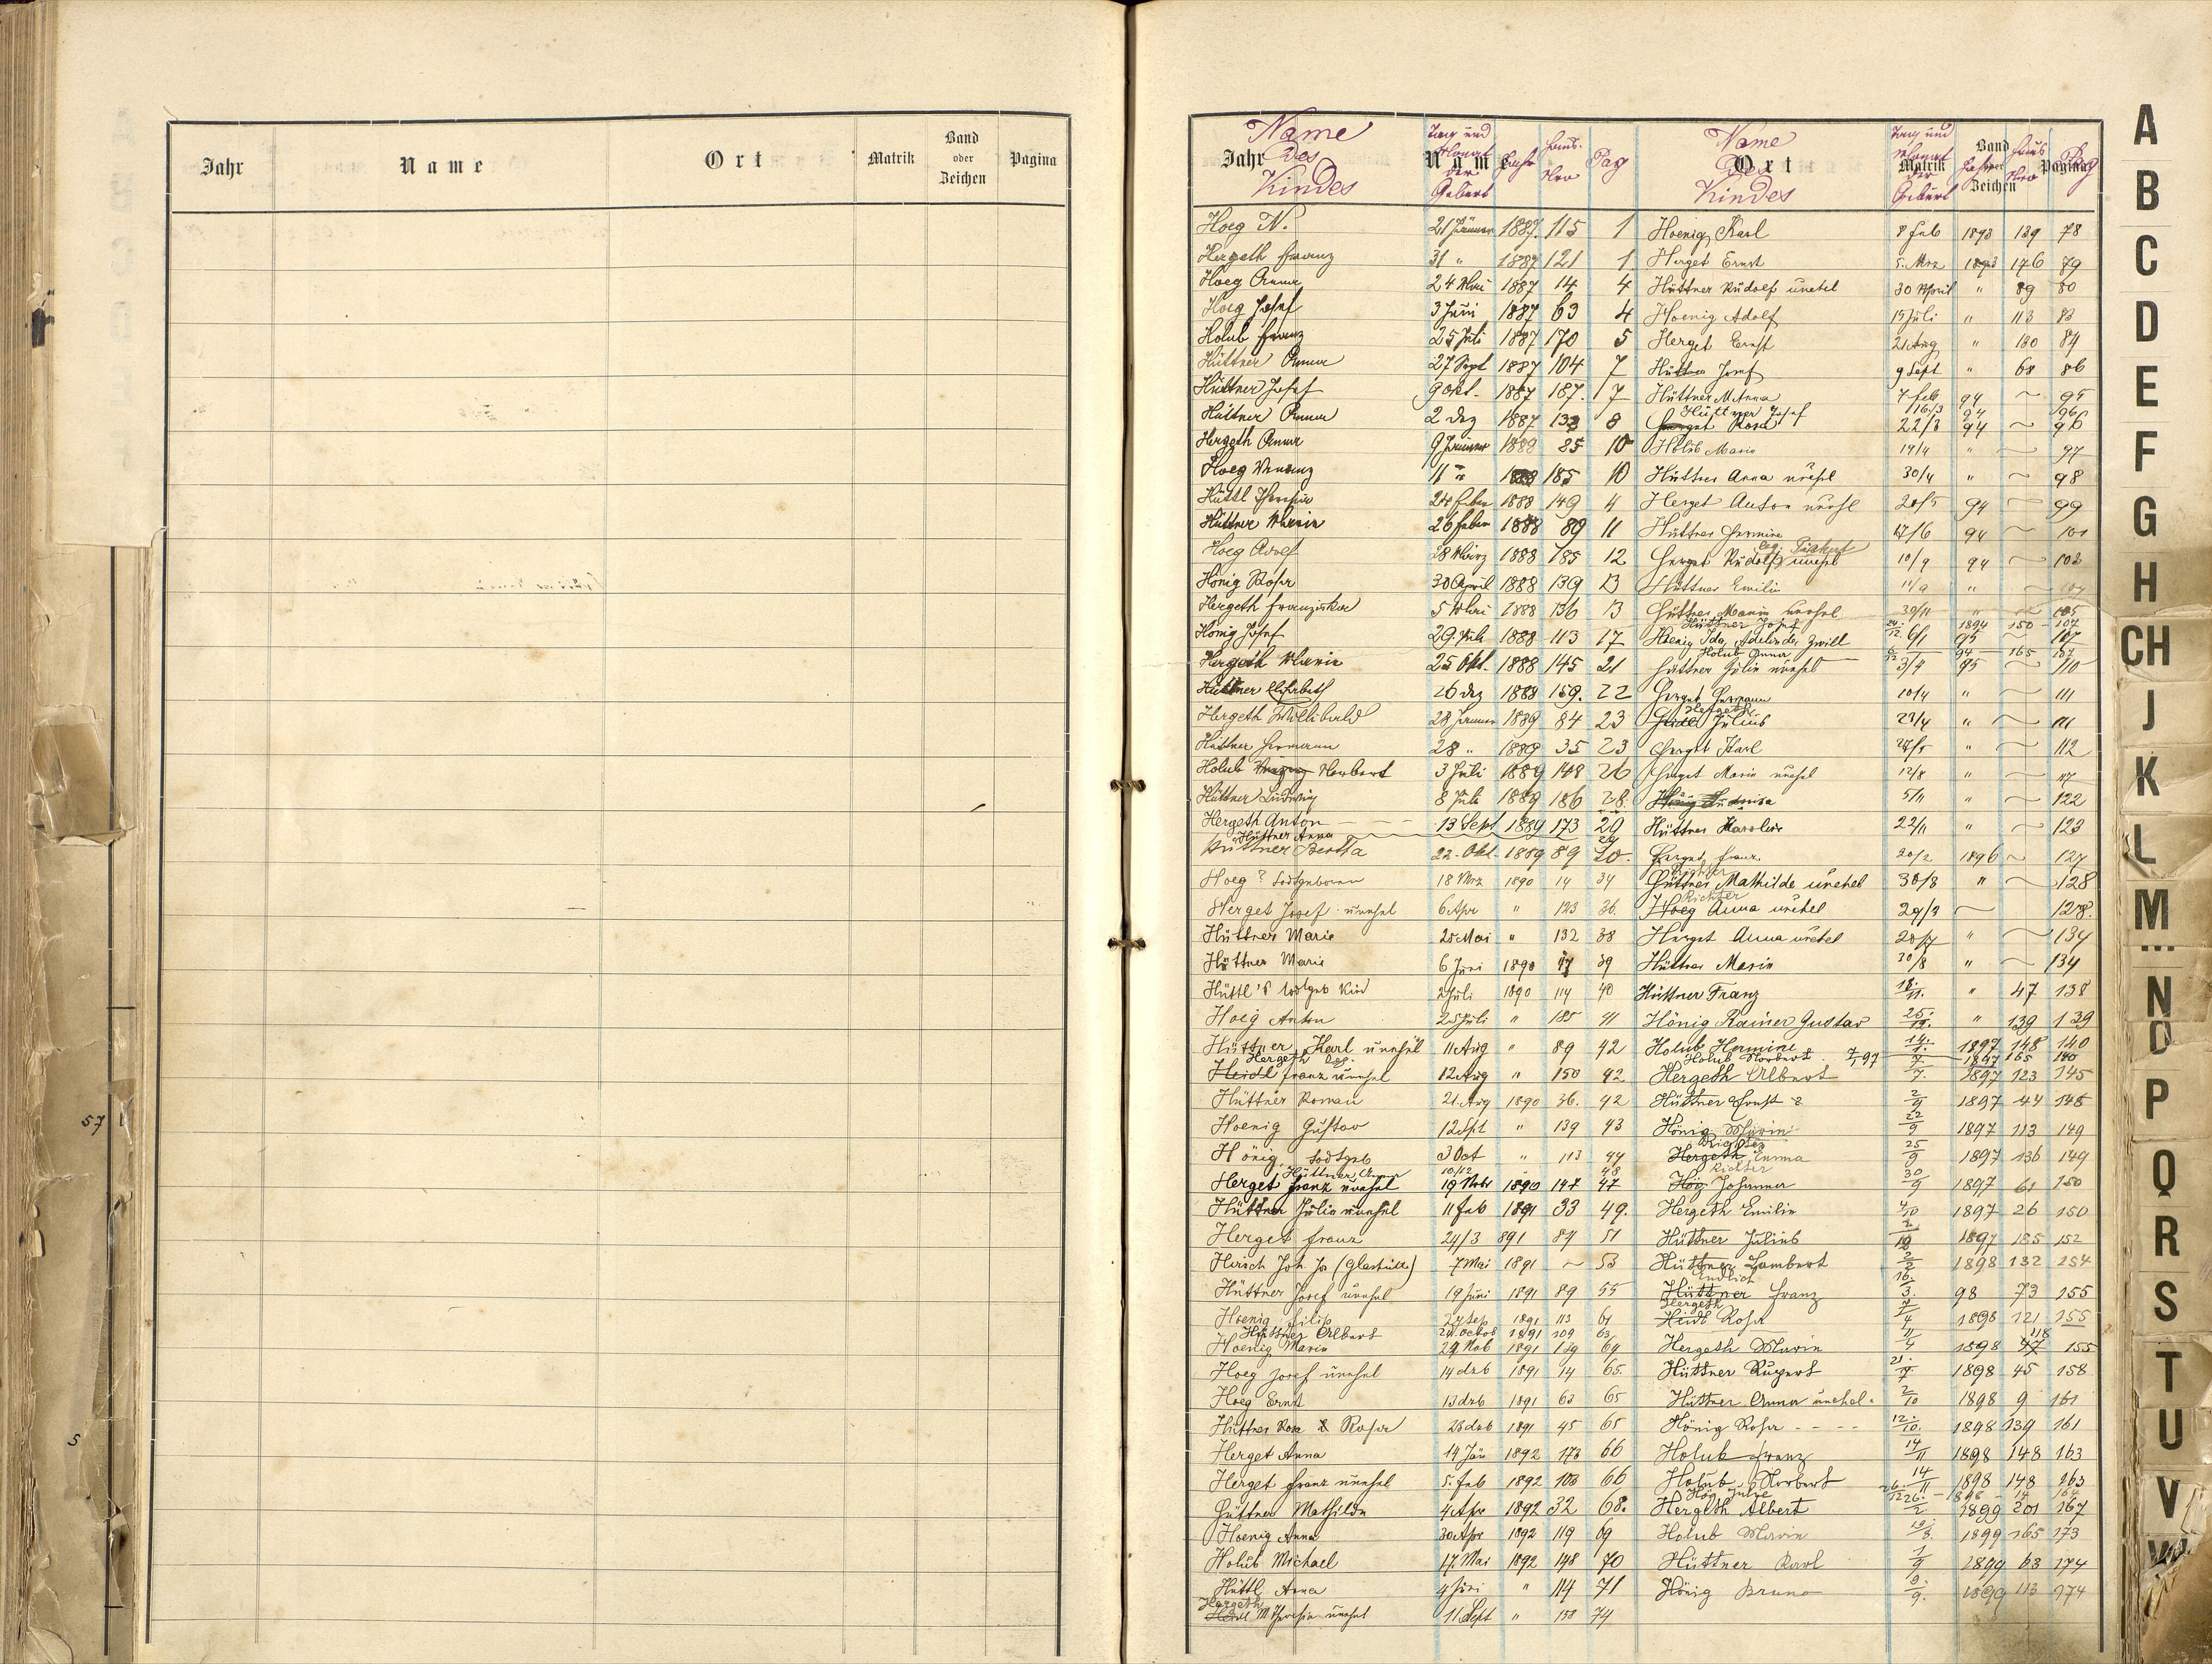 Jahr Name Ort Matrik Band oder Zeichen Pagina
57
5
Jahr Name Ort Matrik Band oder Zeichen Pagina
Name des Kindes Tag und Monat der Geburt Jahr Haus Nro Pag Name des Kindes Tag und Monat der Geburt Jahr Haus Nro Pag
Hoeg N. 21 Jänner 1887 115 1
Hergeth Franz 31 " 1887 121 1
Hoeg Anna 24 Mai 1887 14 4
Hoeg Josef 3 Juni 1887 63 4
Holub Franz 25 Juli 1887 170 5
Hüttner Anna 27 Sept 1887 104 7
Hüttner Josef 9 Okt. 1887 187. 7
Hüttner Anna 2 Dez 1887 133 8
Hergeth Anna 9 Jänner 1888 85 10
Hoeg 11 " 1888 185 10
Hüttl Theresia 24 Feber 1888 149 11
Hüttner Maria 26 Feber 1888 89 11
Hoeg Adolf 28 März 1888 185 12
Hönig Rosa 30 April 1888 139 13
Hergeth Franziska 5 Mai 1888 136 13
Hönig Josef 29 Juli 1888 113 17
Hergeth Maria 25 Okt. 1888 145 21
Hüttner Elisabeth 26 Dez 1888 159. 22
Hergeth Willibald 28 Jänner 1889 84 23
Hüttner Hermann 28 " 1889 35 23
Holub Norbert 3 Juli 1889 148 26
Hüttner Ludwig 8 Juli 1889 186 28.
Hergeth Anton 13 Sept 1889 173 29
Hüttner Anna 29
Hüttner Bertha 22. Okt. 1889 89 30.
Hoeg ? todtgeboren 18 Mrz 1890 14 34
Herget Josef unehel 6 Apr " 123 36.
Hüttner Marie 25 Mai " 132 38
Hüttner Marie 6 Juni 1890 47 39
Hüttl's todtgeb Kind 2 Juli 1890 114 40
Hoeg Anton 25 Juli " 185 41
Hüttner Karl unehel 11 Aug " 89 42
Hergeth leg.
Heidl Franz unehel 12 Aug " 150 42
Hüttner Roman 21. Aug 1890 36. 42
Hoenig Gustav 12 Spt " 139 43
Hönig todtgeb 3 Oct " 113 44
Hüttner 10/12 48
Herget Franz unehel 19 Nobr 1890 147 47
Hüttner Julie unehel 11 Feb 1891 33 49.
Herget Franz 24/3 891 84 51
Hirsch Joh. Jos (Glashütte) 7 Mai 1891 ~ 53
Hüttner Josef unehel 19 Juni 1891 89 55
Hoenig Filip 27 Sep 1891 113 61
Hüttner Albert 24. Octob 1891 109 63
Hoenig Marie 29. Nob 1891 139 64
Hoeg Josef unehel 14 dzb 1891 14 65.
Hoeg Ernst 13 dzb 1891 63 65
Hüttner Rosa & Rosa 28 dzb 1891 45 65
Herget Anna 14 Jän 1892 173 66
Herget Franz unehel 5. Feb 1892 103 66
Hüttner Mathilde 4. Apr 1892 32 68.
Hoenig Anna 30 Apr 1892 119 69
Holub Michael 17. Mai 1892 148 70
Hüttl Anna 4 Juni " 114 71
Hergeth
Heidl M Theresia unehel 11 Sept " 158 74
Hoenig Karl 8 Feb 1893 139 78
Herget Ernst 5. Mrz 1893 176 79
Hüttner Rudolf unehel 30 April " 89 80
Hoenig Adolf 15 Juli " 113 83
Herget Ernst 21 Aug " 130 84
Hüttner Josef 9 Sept " 68 86
Hüttner M. Anna 7 Feb 94 ~ 95
Hüttner Josef 16/3 94 96
Herget Rosa 22/3 94 ~ 96
Holub Marie 14/4 " ~ 97
Hüttner Anna unehel 30/4 " ~ 98
Herget Anton unehl 20/5 94 ~ 99
Hüttner Hermine 17/6 94 ~ 101
leg.
Herget Rudolf unehel 10/9 94 ~ 103
Hüttner Emilie 14/9 " ~ 104
Hüttner Maria unehel 30/11 " ~ 105
Hüttner Josef 24/12. 1894 150 107
Hoenig Ida, Adelinde, Zwill 6/1 95 ~ 107
Holub Anna 6/12 94 165 107
Hüttner Julie unehel 3/4 95 ~ 110
Herget Hermann 10/4 " ~ 111
Hergeth
Heidl Julius 23/4 " ~ 111
Herget Karl 27/5 " ~ 112
Herget Maria unehel 12/8 " ~ 117
Hönig Ludmila 5/11 " ~ 122
Hüttner Karoline 22/11 " ~ 123
Herget Franz 20/2 1896 ~ 127
Richter
Hüttner Mathilde unehel 30/3 " ~ 128
Richter
Hoeg Anna unehel 29/3 ~ 128.
Herget Anna unehel 20/7 " ~ 134
Hüttner Marie 30/8 " ~ 134
Hüttner Franz 18./11. " 47 138
Hönig Rainer Gustav 25./12. " 139 139
Holub Hermine 14./1. 1897 148 140
Holub Norbert 7/1 97 1897 165 140
Hergeth Albert 7/7. 1897 123 145
Hüttner Ernst 2/9 1897 44 148
Hönig Marie 22/9 1897 113 149
Richter
Hergeth Emma 25/9 1897 136 149
Richter
Hög Johanna 30/9 1897 61 150
Hergeth Emilie 4/10 1897 26 150
Hüttner Julius 1897 185 152
Hüttner Lambert 2/2 1898 132 154
Endlich
Hüttner Franz 16./3. 98 73 155
Hergeth
Heidl Rosa 7/4 1898 121 155
Hergeth Marie 11/4 1898 47 118 155
Hüttner Rupert 21./7 1898 45 158
Hüttner Anna unehel. 2/10 1898 9 161
Hönig Rosa 12./10. 1898 139 161
Holub Franz 14/11 1898 148 163
Holub Norbert 14/11 1898 148 163
Hög 26./12 1898 14 164
Hergeth Albert 26./2 1899 201 167
Holub Marie 19/8. 1899 165 173
Hüttner Karl 1/9 1899 63 174
Hönig Bruno 9./9. 1899 113 174
A
B
C
D
E
F
G
H
CH
J
K
L
M
N
O
P
Q
R
S
T
U
V
W